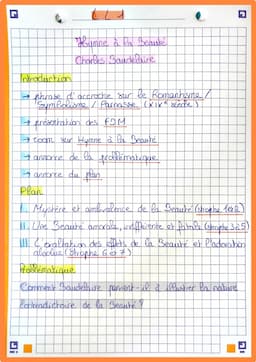 LL1
Hymne à la Beauté
Charles Baudelaire
Introduction
→ phrase d'accroche sur le Romantisme /
Symbolisme / Parnasse (XIXe siècle)
→ présentation des FDM
→ zoom sur Hymne à la Beauté
→ annonce de la problématique
→ annonce du plan
Plan
I. Mystère et ambivalence de la Beauté (strophe 1 à 2)
II. Une Beauté amorale, indifférente et fatale (strophe 3 à 5)
III. L'exaltation des effets de la Beauté et l'adoration
absolue (strophe 6 à 7)
Problématique
Comment Baudelaire parvient-il à illustrer la nature
contradictoire de la Beauté ?